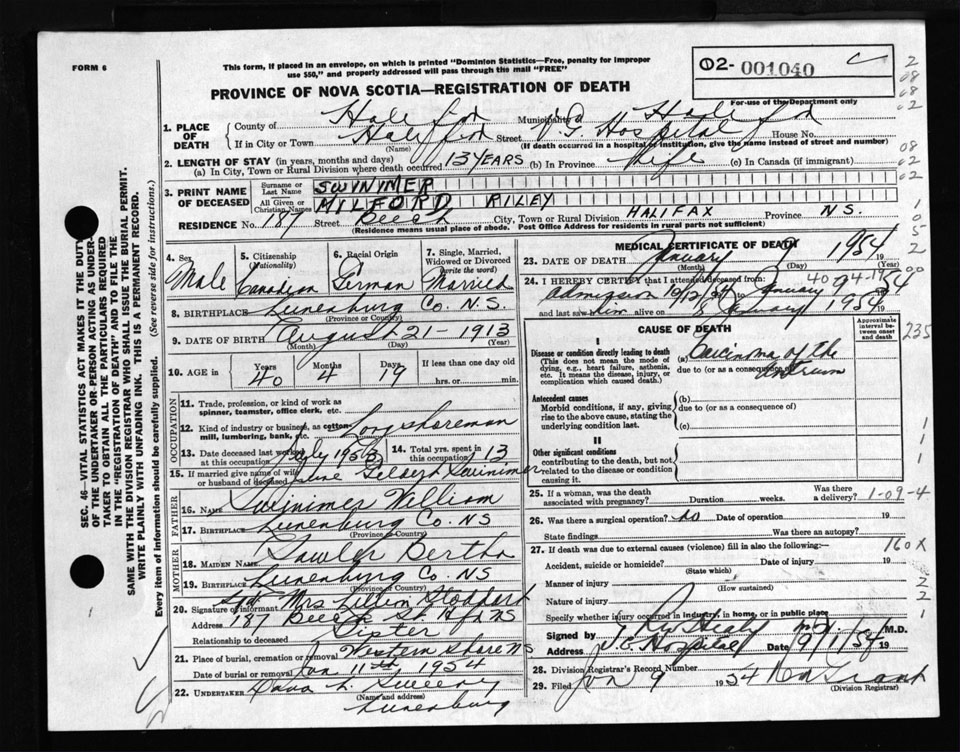 FORM 6
This form, if placed in an envelope, on which is printed "Dominion Statistics—Free, penalty for improper
use $50," and properly addressed will pass through the mail "FREE"
PROVINCE OF NOVA SCOTIA—REGISTRATION OF DEATH
02- 001040 C
For use of the Department only
1. PLACE OF DEATH
County of Halifax Municipality Halifax
If in City or Town Halifax Street V G Hospital House No.
(Name) (If death occurred in a hospital or institution, give the name instead of street and number)
2. LENGTH OF STAY (in years, months and days)
(a) In City, Town or Rural Division where death occurred 13 YEARS (b) In Province Life (c) In Canada (if immigrant)
3. PRINT NAME OF DECEASED
Surname or Last Name SWINIMER
All Given or Christian Names MILFORD RILEY
RESIDENCE No. 187 Street Beech City, Town or Rural Division HALIFAX Province N.S.
(Residence means usual place of abode. Post Office Address for residents in rural parts not sufficient)
4. Sex Male
5. Citizenship (Nationality) Canadian
6. Racial Origin German
7. Single, Married, Widowed or Divorced (write the word) Married
8. BIRTHPLACE Lunenburg Co. N.S.
(Province or Country)
9. DATE OF BIRTH August 21-1913
(Month) (Day) (Year)
10. AGE in Years 40 Months 4 Days 19 If less than one day old
hrs. or min.
OCCUPATION
11. Trade, profession, or kind of work as
spinner, teamster, office clerk, etc.
12. Kind of industry or business, as cotton-
mill, lumbering, bank, etc. Longshoreman
13. Date deceased last worked at this occupation July 1953
14. Total yrs. spent in this occupation 13
15. If married give name of wife
or husband of deceased Swinimer
FATHER
16. NAME Swinimer William
17. BIRTHPLACE Lunenburg Co. NS
(Province or Country)
MOTHER
18. MAIDEN NAME Lawler Bertha
19. BIRTHPLACE Lunenburg Co. NS
(Province or Country)
20. Signature of informant Mrs Lillian
Address 187 Beech St. Hfx NS
Relationship to deceased Sister
21. Place of burial, cremation or removal Western Shore NS
Date of burial or removal Jan 11th 1954
22. UNDERTAKER
(Name and address)
Lunenburg
MEDICAL CERTIFICATE OF DEATH
23. DATE OF DEATH January 9 1954
(Month) (Day) (Year)
24. I HEREBY CERTIFY that I attended deceased from:
Admission to January 1954
and last saw him alive on January 1954 19
CAUSE OF DEATH
Approximate interval between onset and death
I
Disease or condition directly leading to death
(This does not mean the mode of
dying, e.g., heart failure, asthenia,
etc. It means the disease, injury, or
complication which caused death.
(a) Carcinoma of the
due to (or as a consequence of)
Antecedent causes
Morbid conditions, if any, giving
rise to the above cause, stating the
underlying condition last.
(b)
due to (or as a consequence of)
(c)
II
Other significant conditions
contributing to the death, but not
related to the disease or condition
causing it.
25. If a woman, was the death
associated with pregnancy? Duration weeks. Was there a delivery?
1-09-4
26. Was there a surgical operation? no Date of operation 19
State findings Was there an autopsy?
27. If death was due to external causes (violence) fill in also the following:-
160 X
Accident, suicide or homicide? Date of injury 19
(State which)
Manner of injury
(How sustained)
Nature of injury
Specify whether injury occurred in industry, in home, or in public place
Signed by Healy M.D.
Address V.G. Hospital Date 9/1/54 19
28. Division Registrar's Record Number
29. Filed Jan 9 1954
(Division Registrar)
SEC. 46—VITAL STATISTICS ACT MAKES IT THE DUTY
OF THE UNDERTAKER OR-PERSON ACTING AS UNDER-
TAKER TO OBTAIN ALL THE PARTICULARS REQUIRED
IN THE "REGISTRATION OF DEATH" AND TO FILE THE
SAME WITH THE DIVISION REGISTRAR WHO SHALL ISSUE THE BURIAL PERMIT.
WRITE PLAINLY WITH UNFADING INK. THIS IS A PERMANENT RECORD.
Every item of information should be carefully supplied. (See reverse side for instructions.)